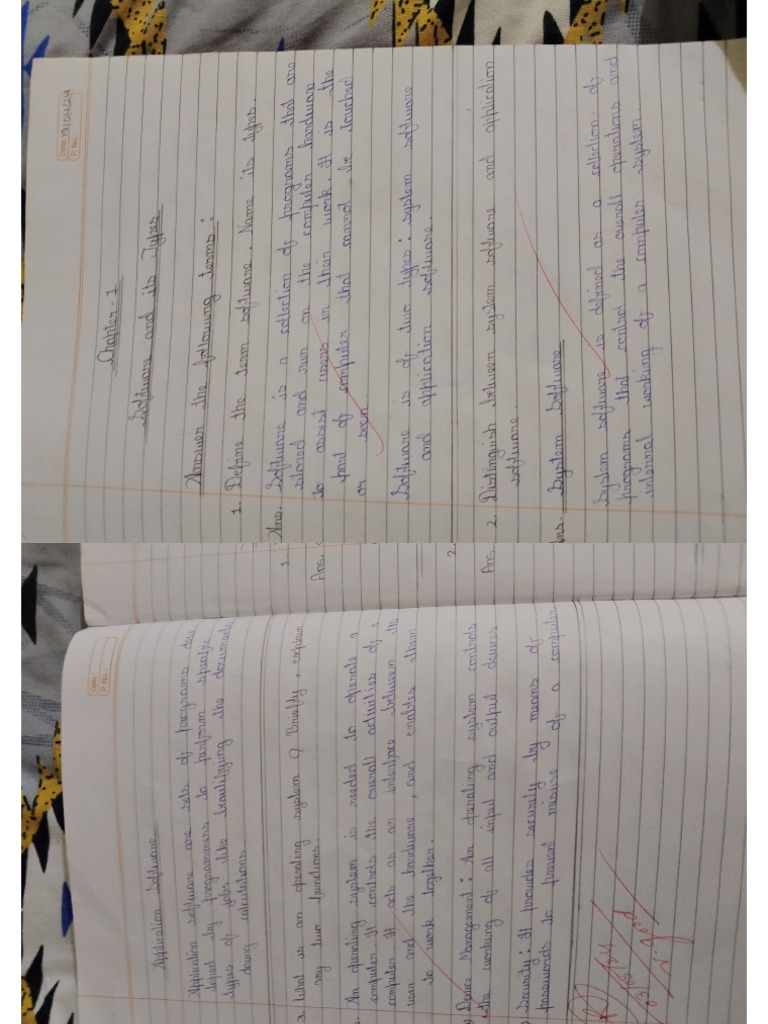 Date: 19/04/24
P. No.:
Chapter - 1
Software and its Types
Answer the following terms:
1. Define the term software. Name its types.
Ans. Software is a collection of programs that are
stored and run on the computer hardware
to assest users in their work. It is the
part of computer that cannot be touched
or seen
Software is of two types: system software
and application software.
2. Distinguish between system software and application
software.
Ans. System Software
System software is defined as a collection of
programs that control the overall operations and
internal working of a computer system.
1.
Ans.
2.
Ans.
Date:
P. No.:
Application Software
Application software are sets of programs deve
loped by programmers to perform specific
types of jobs like beautifying the documents
doing calculations.
3. What is an operating system? Briefly, explain
any two functions.
An operating system is needed to operate a
computer It controls the overall activities of a
computer It acts as an interface between the
user and the hardware, and enables them
to work together.
Device Management: An operating system controls
the working of all input and output devices
Security: It provides security by means of
passwords to prevent misuse of a computer
03/05/24
V. good